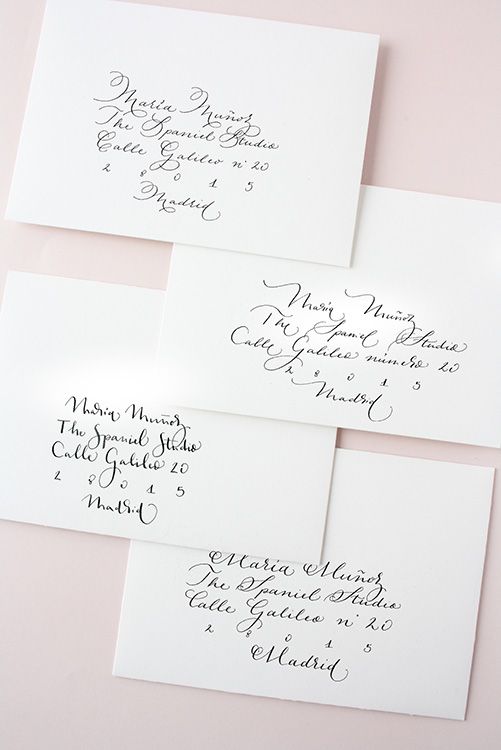 Maria Muñoz
The Spaniel Studio
Calle Galileo nº 20
2 8 0 1 5
Madrid
Maria Muñoz
The Spaniel Studio
Calle Galileo número 20
2 8 0 1 5
Madrid
Maria Muñoz
The Spaniel Studio
Calle Galileo 20
2 8 0 1 5
Madrid
Maria Muñoz
The Spaniel Studio
Calle Galileo nº 20
2 8 0 1 5
Madrid